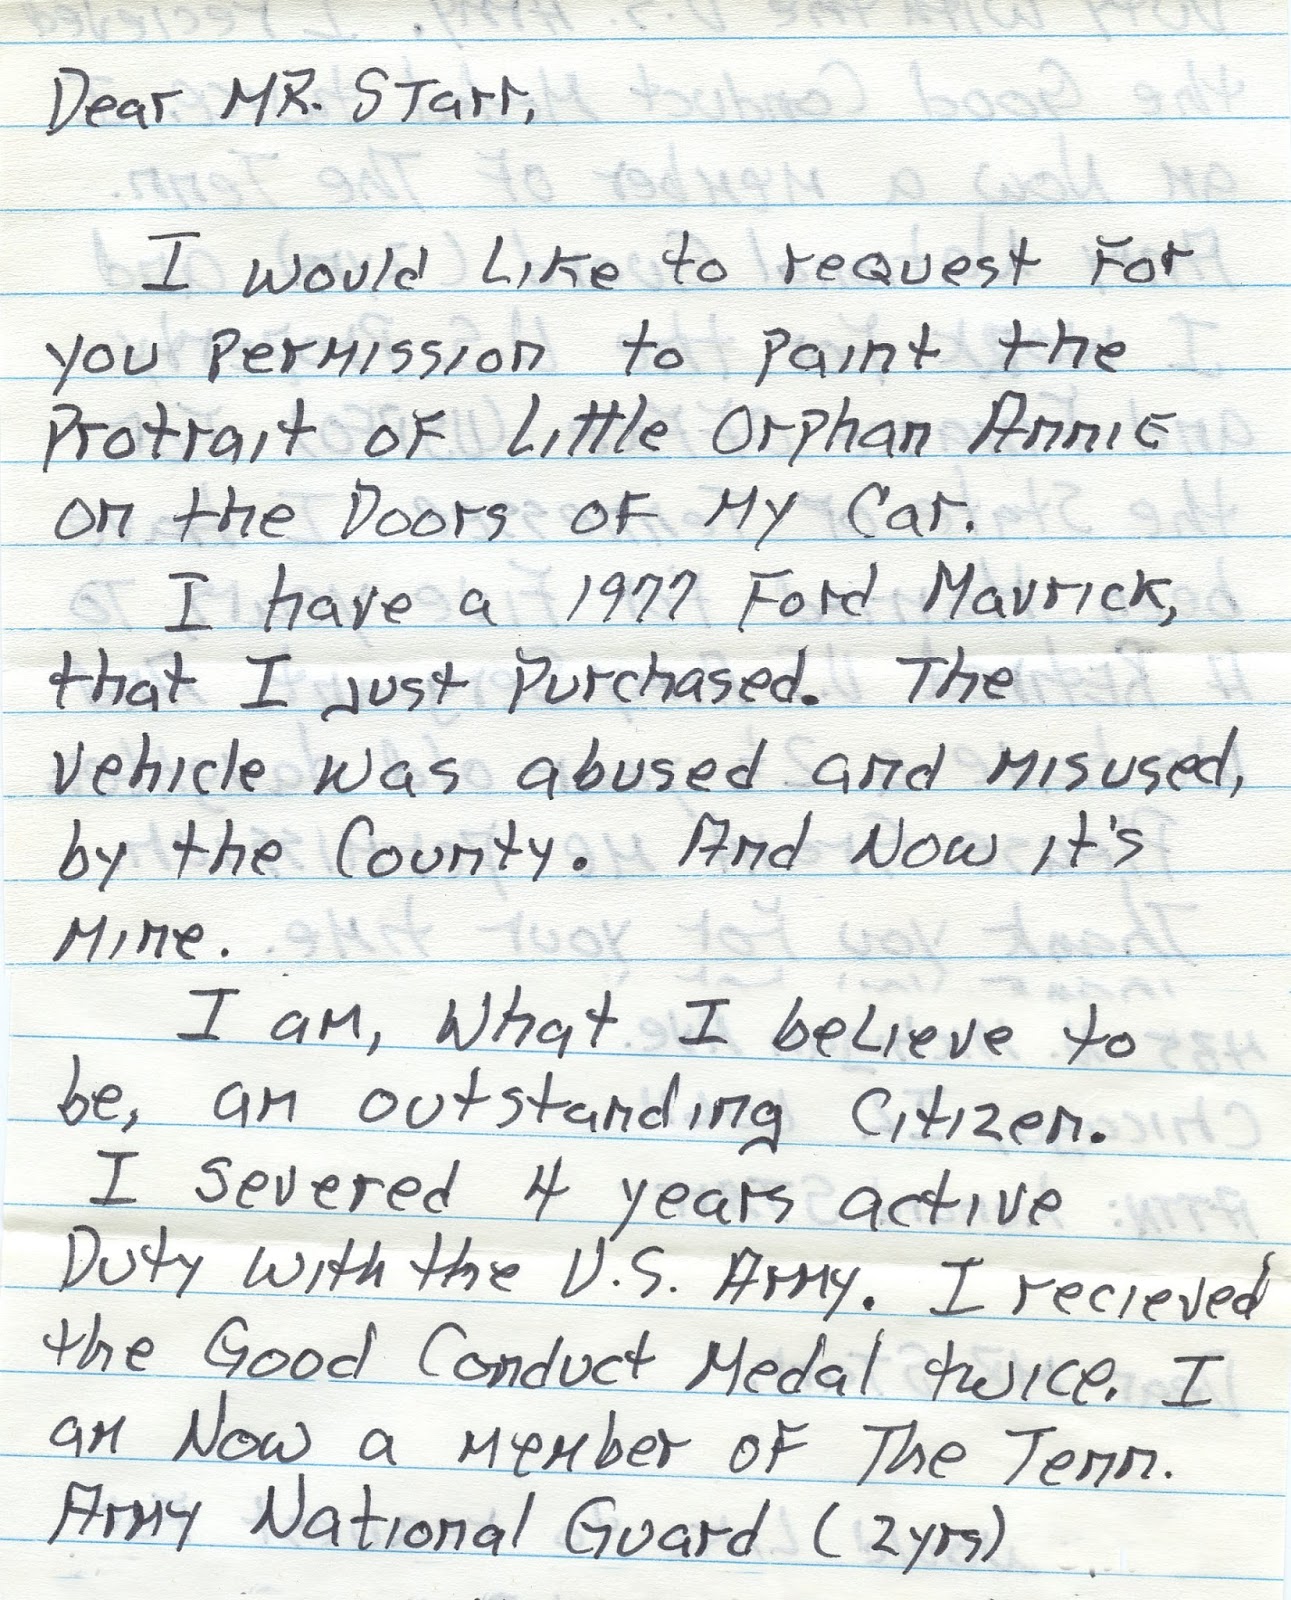 Dear MR. Starr,
I would Like to request For
you Permission to paint the
Protrait of Little Orphan Annie
on the Doors of My Car.
I have a 1977 Ford Mavrick,
that I just Purchased. The
vehicle was abused and misused,
by the County. And Now it's
Mine.
I am, What I believe to
be, an outstanding Citizen.
I severed 4 years active
Duty with the U.S. Army. I recieved
the Good Conduct Medal twice. I
am Now a member of The Tenn.
Army National Guard (2yrs)